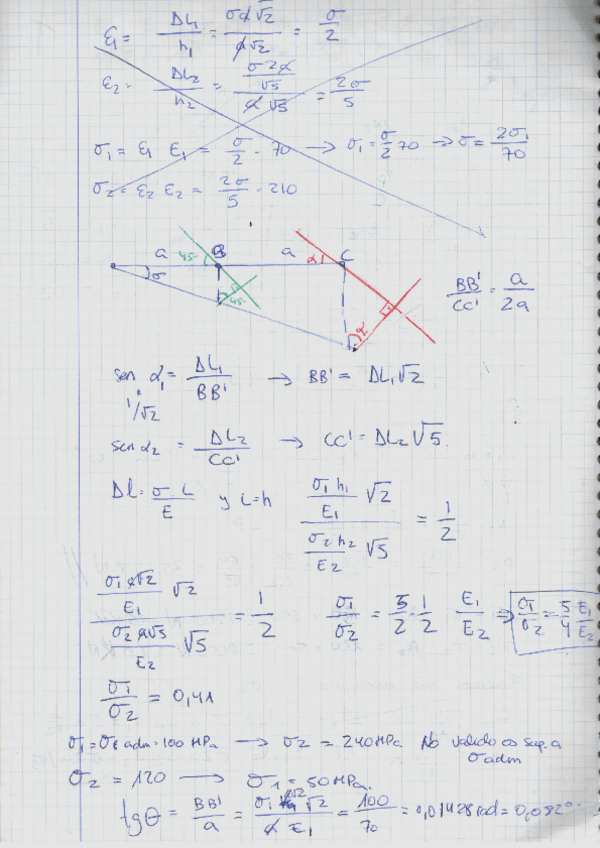 ε₁ = ΔL₁/h₁ = σa√2/a√2 = σ/2
ε₂ = ΔL₂/h₂ = (σ2a/√5)/(a√5) = 2σ/5
σ₁ = ε₁ E₁ = σ/2 · 70 → σ₁ = σ/2 70 → σ = 2σ₁/70
σ₂ = ε₂ E₂ = 2σ/5 · 210
a B a C
45 α1
σ 45 α
BB'/CC' = a/2a
sen α₁ = ΔL₁/BB' → BB' = ΔL₁√2
1/√2
sen α₂ = ΔL₂/CC' → CC' = ΔL₂√5.
Δl = σ·L/E y L=h (σ₁h₁/E₁ √2)/(σ₂h₂/E₂ √5) = 1/2
(σ₁a√2/E₁ √2)/(σ₂a√5/E₂ √5) = 1/2 σ₁/σ₂ = 5/2 · 1/2 E₁/E₂ ⇒ σ₁/σ₂ = 5/4 E₁/E₂
σ₁/σ₂ = 0,41
σ₁ = σ adm = 100 MPa → σ₂ = 240 MPa No valido es sup. a
σ adm
σ₂ = 120 → σ₁ = 50 MPa.
tgθ = BB'/a = σ₁ √2 √2/a E₁ = 100/70 = 0,01428 rad = 0,082°